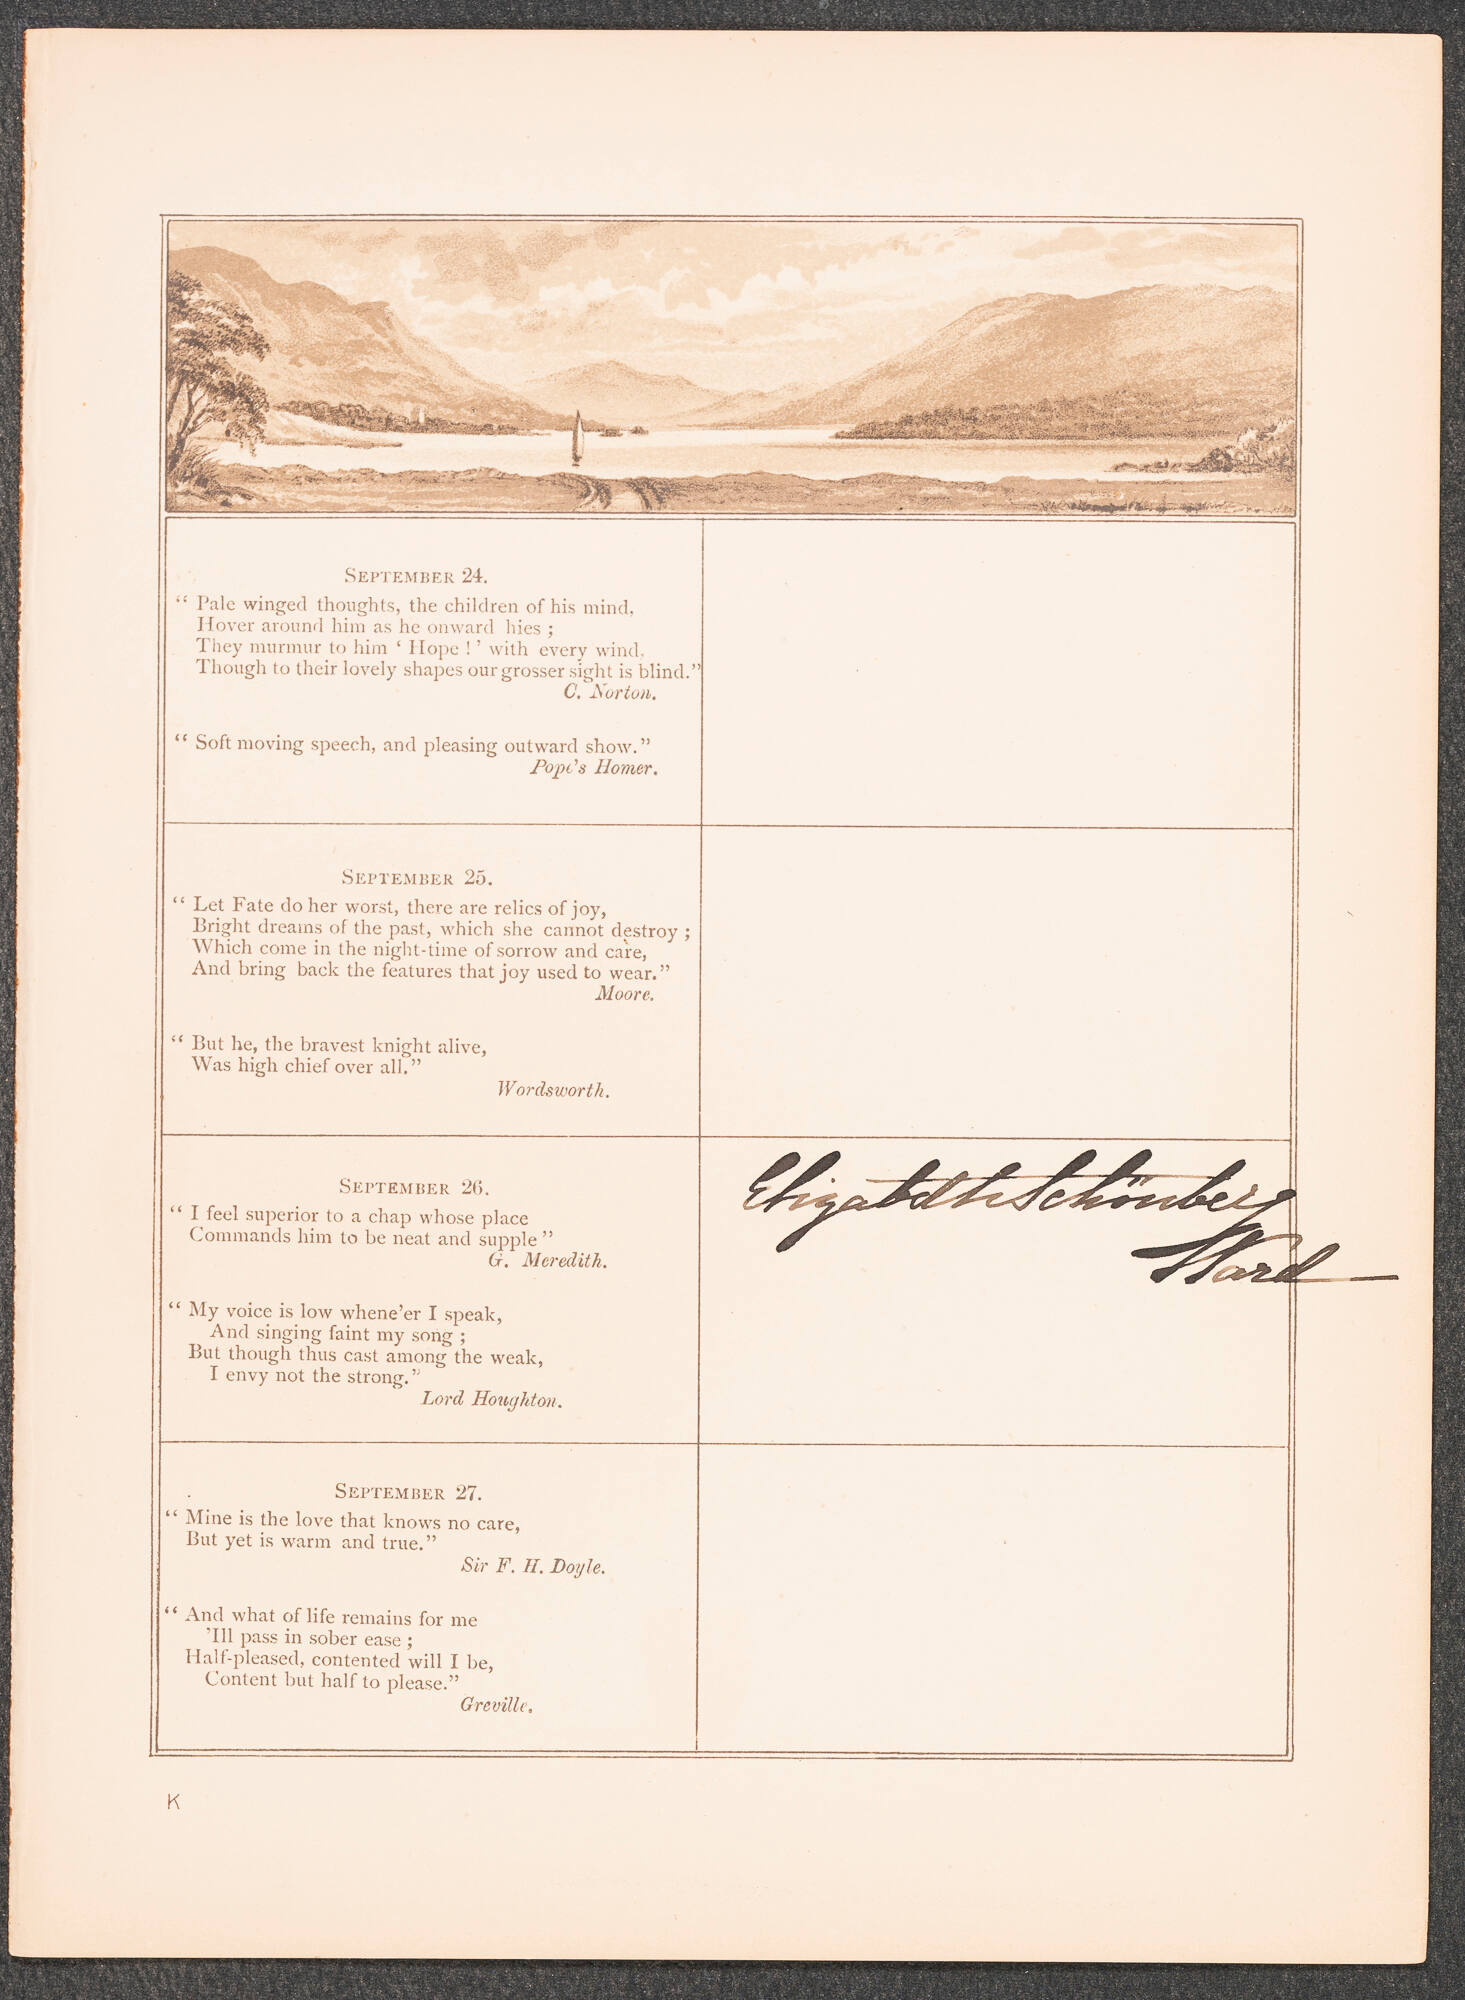 SEPTEMBER 24.
“ Pale winged thoughts, the children of his mind,
Hover around him as he onward hies ;
They murmur to him ‘ Hope ! ’ with every wind,
Though to their lovely shapes our grosser sight is blind.”
C. Norton.
“ Soft moving speech, and pleasing outward show.”
Pope's Homer.
SEPTEMBER 25.
“ Let Fate do her worst, there are relics of joy,
Bright dreams of the past, which she cannot destroy ;
Which come in the night-time of sorrow and care,
And bring back the features that joy used to wear.”
Moore.
“ But he, the bravest knight alive,
Was high chief over all.”
Wordsworth.
SEPTEMBER 26.
“ I feel superior to a chap whose place
Commands him to be neat and supple ”
G. Meredith.
“ My voice is low whene'er I speak,
And singing faint my song ;
But though thus cast among the weak,
I envy not the strong.”
Lord Houghton.
Elizabeth Schönberg
Ward
SEPTEMBER 27.
“ Mine is the love that knows no care,
But yet is warm and true.”
Sir F. H. Doyle.
“ And what of life remains for me
'Ill pass in sober ease ;
Half-pleased, contented will I be,
Content but half to please.”
Greville.
K